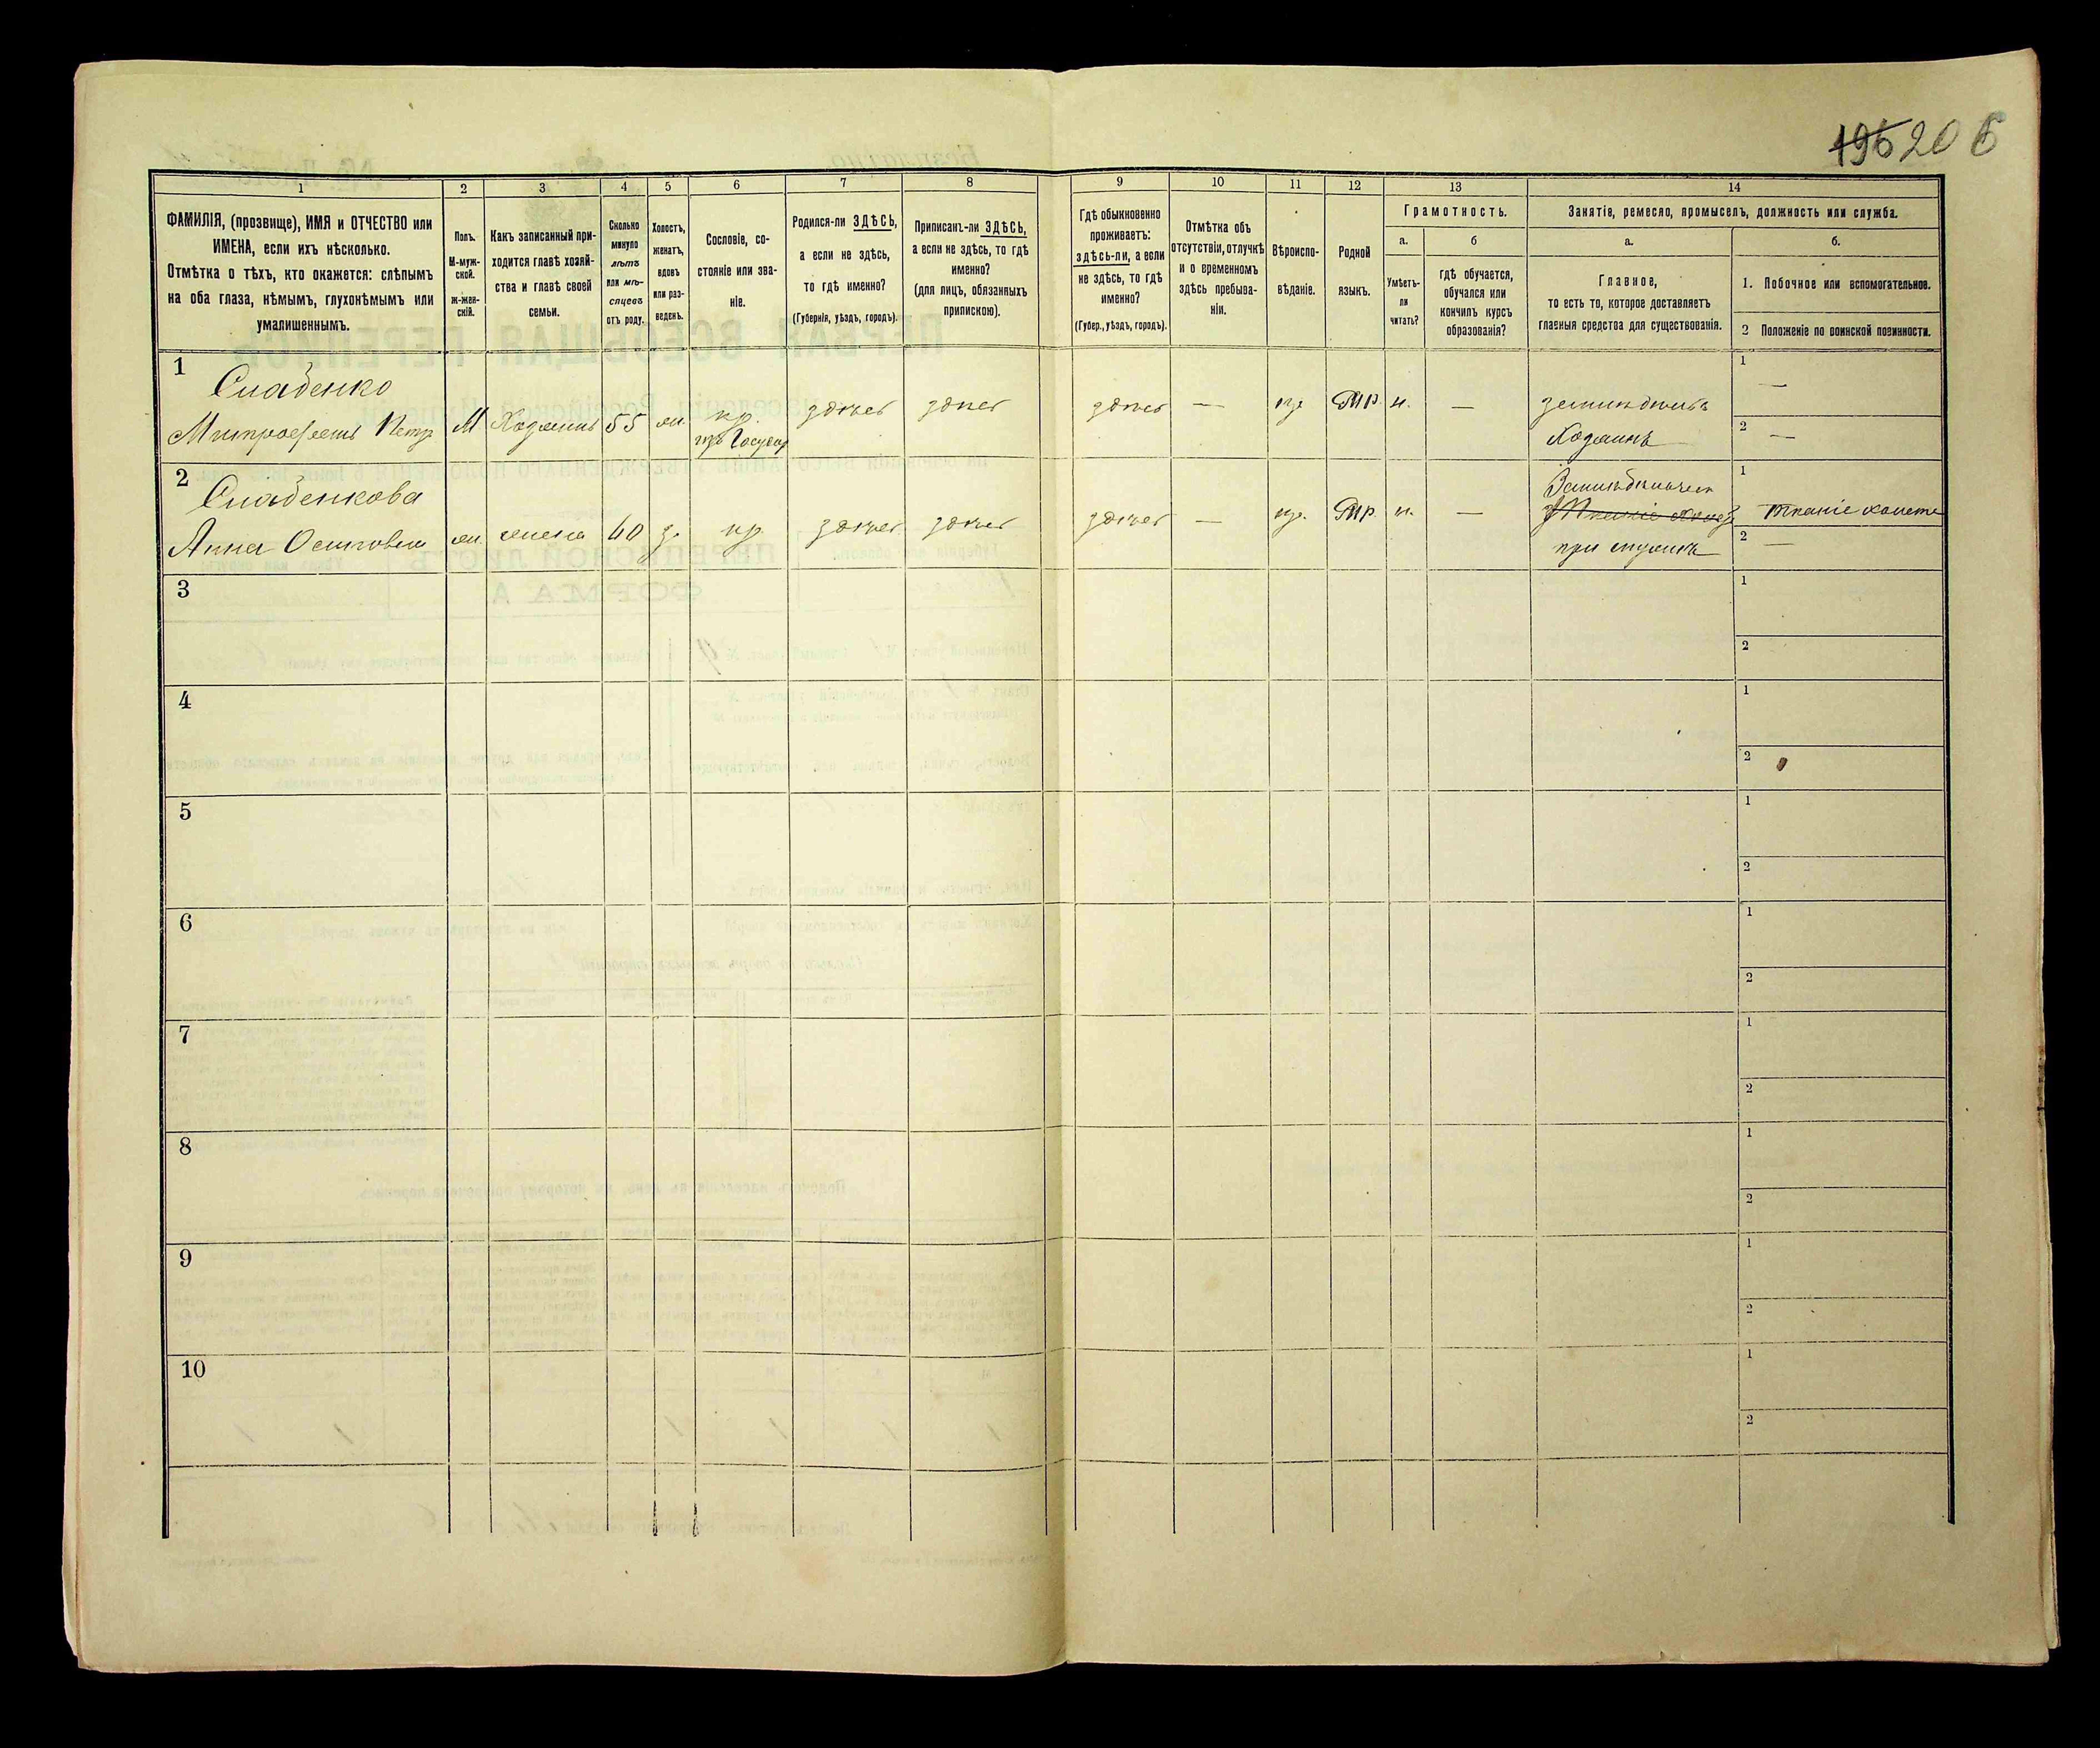 195 206
1 2 3 4 5 6 7 8 9 10 11 12 13 14
ФАМИЛІЯ, (прозвище), ИМЯ и ОТЧЕСТВО или
ИМЕНА, если ихъ нѣсколько.
Отмѣтка о тѣхъ, кто окажется: слѣпымъ
на оба глаза, нѣмымъ, глухонѣмымъ или
умалишеннымъ.
Полъ.
М-муж-
ской.
ж-жен-
скій.
Какъ записанный при-
ходится главѣ хозяй-
ства и главѣ своей
семьи.
Сколько
минуло
лѣтъ
или мѣ-
сяцевъ
отъ роду.
Холостъ,
женатъ,
вдовъ
или раз-
веденъ.
Сословіе, со-
стояніе или зва-
ніе.
Родился-ли ЗДѢСЬ,
а если не здѣсь,
то гдѣ именно?
(Губернія, уѣздъ, городъ).
Приписанъ-ли ЗДѢСЬ,
а если не здѣсь, то гдѣ
именно?
(для лицъ, обязанныхъ
припискою).
Гдѣ обыкновенно
проживаетъ:
здѣсь-ли, а если
не здѣсь, то гдѣ
именно?
(Губер., уѣздъ, городъ).
Отмѣтка объ
отсутствіи, отлучкѣ
и о временномъ
здѣсь пребыва-
ніи.
Вѣроиспо-
вѣданіе.
Родной
языкъ.
Грамотность.
а.
Умѣетъ-
ли
читать?
б
гдѣ обучается,
обучался или
кончилъ курсъ
образованія?
Занятіе, ремесло, промыселъ, должность или служба.
а.
Главное,
то есть то, которое доставляетъ
главныя средства для существованія.
б.
1. Побочное или вспомогательное.
2 Положеніе по воинской повинности.
1
Слабенко
Митрофанъ Петр
М
Хозяинъ
55
жн.
кр.
изъ Государ
здѣсь
здѣсь
здѣсь
—
пр.
Мр.
н.
—
земледѣлецъ
Хозяинъ
1
—
2
—
2
Слабенкова
Анна Осиповна
жн.
жена
60
з.
кр.
здѣсь
здѣсь
здѣсь
—
пр.
Мр.
н.
—
при мужѣ
1
тканіе холста
2
—
3
1
2
4
1
2
5
1
2
6
1
2
7
1
2
8
1
2
9
1
2
10
1
2